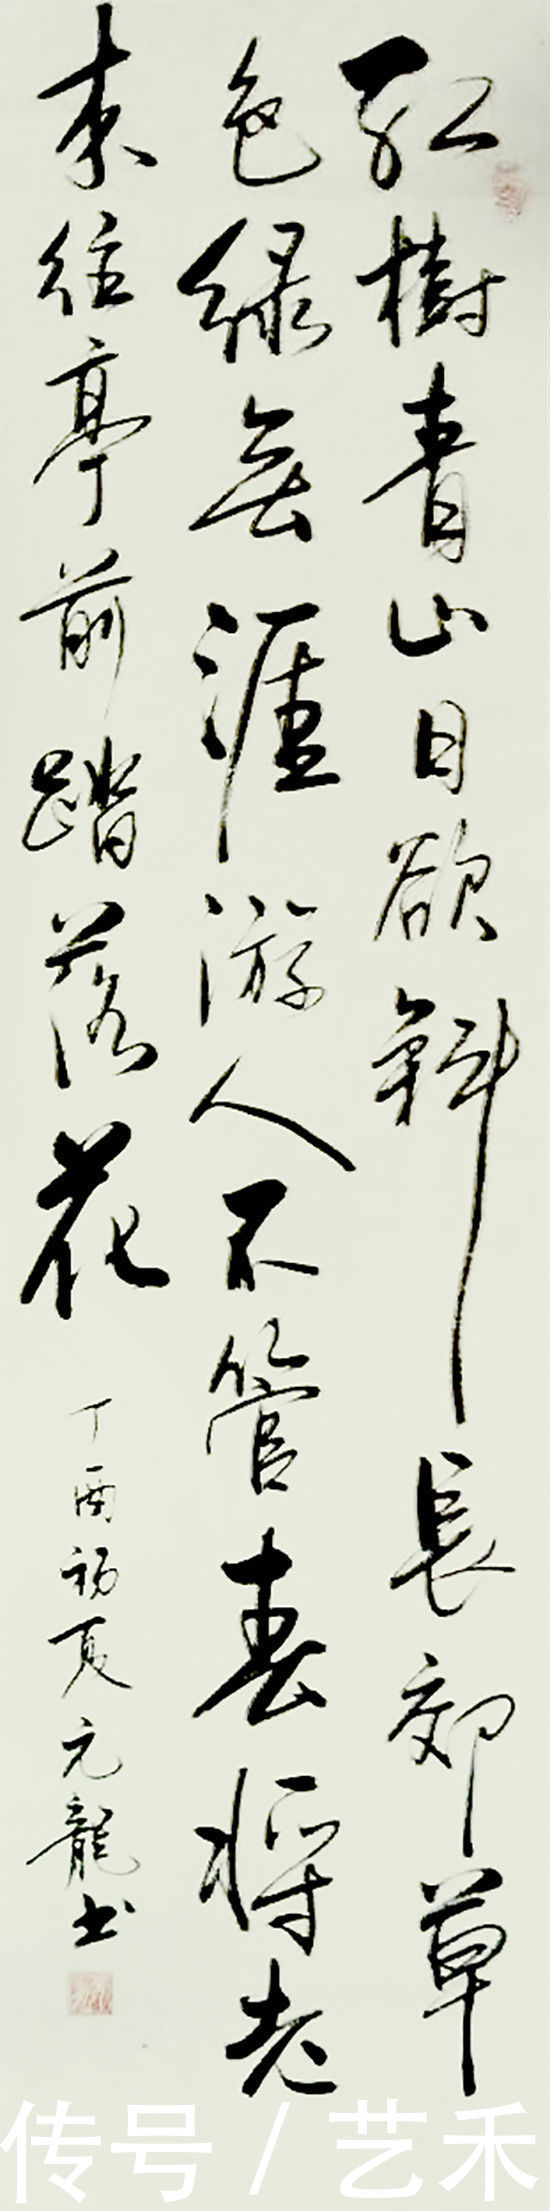 红樹青山日欲斜长郊草
色绿无涯游人不管春将老
来往亭前踏落花
丁酉初夏元龍书
传号/艺禾